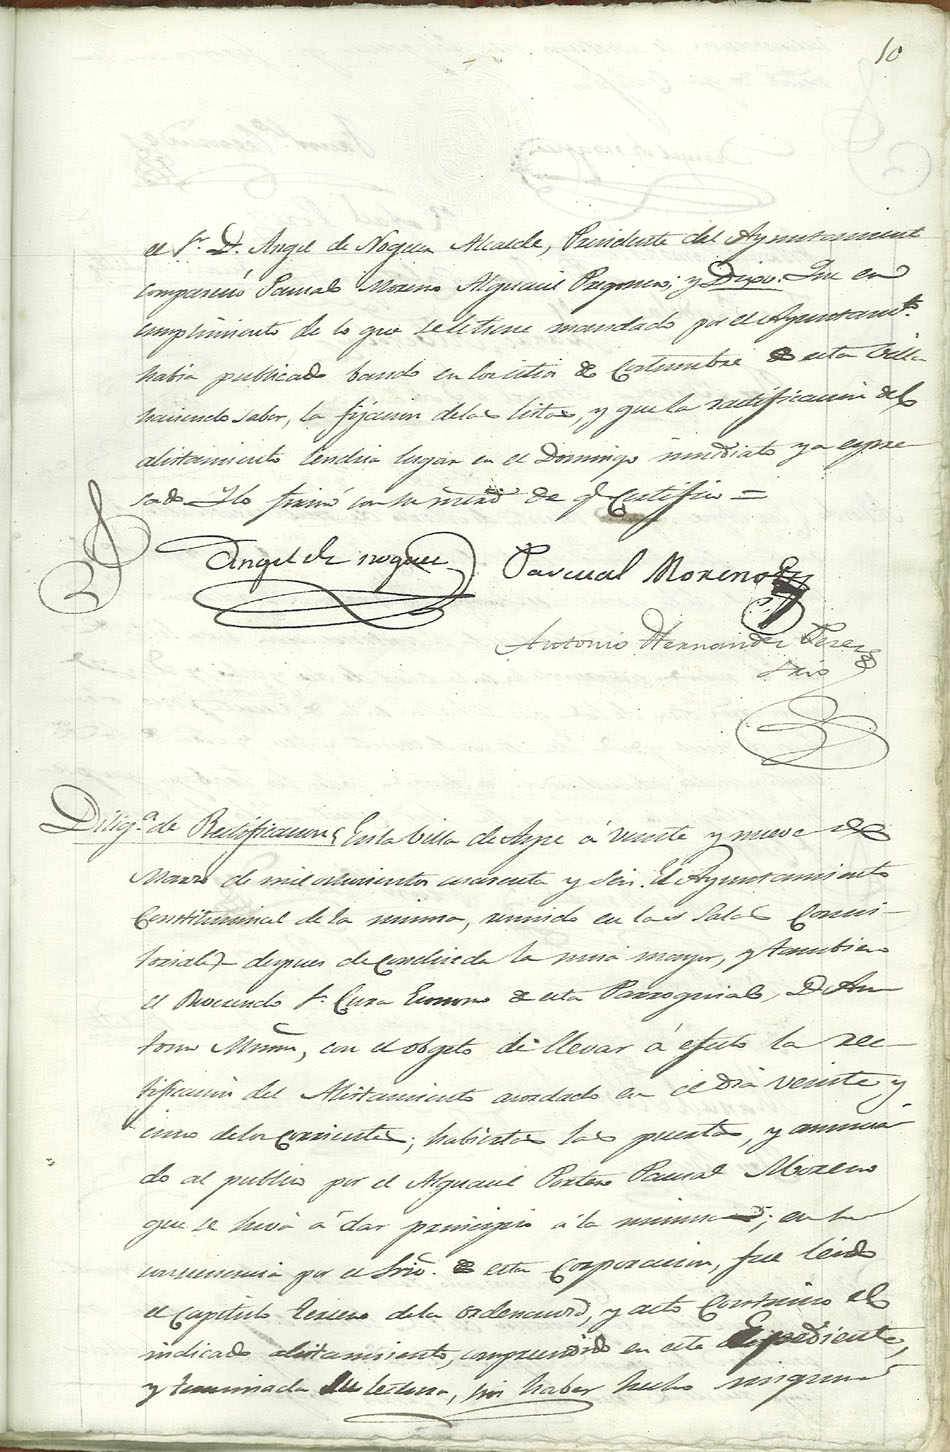 10
el Sr. D. Angel de Noguera Alcalde, Presidente del Ayuntamient
comparecio Pascual Moreno Alguacil Pregonero; y Dixo: Que en
cumplimiento de lo que se le tiene mandado por el Ayuntamto.
habia publicado bando en los sitios de Costumbre de esta Villa
haciendo saber, la fijacion de las listas, y que la rectificacion del
alistamiento tendria lugar en el Domingo inmediato ya espre
sado Y lo firmó con su mrd de q. Certifico =
Angel de noguera
Pascual Moreno
Antonio Hernandez Perez
Srio
Dilig.a de Rectificacion En la Villa de Aspe á veinte y nueve de
Marzo de mil ochocientos cuarenta y seis: El Ayuntamiento
Constitucional de la misma, reunido en las Salas Consis-
toriales despues de Concluida la misa mayor, y tambien
el Reverendo Sr. Cura Economo de esta Parroquial, D. An
tonio, con el objeto de llevar á efecto la rec-
tificacion del Alistamiento acordado en el dia veinte y
cinco de los Corrientes; habiertas las puertas, y anuncia
do al publico por el Alguacil Portero Pascual Moreno
que se hivá á dar principio á la misma; en su
consecuencia por el Srio. de esta Corporacion, fue leido
el Capitulo tercero de la ordenanza, y acto Continuo el
indicado alistamiento, comprendido en este Expediente,
y terminada su lectura, sin haber hecho ninguna